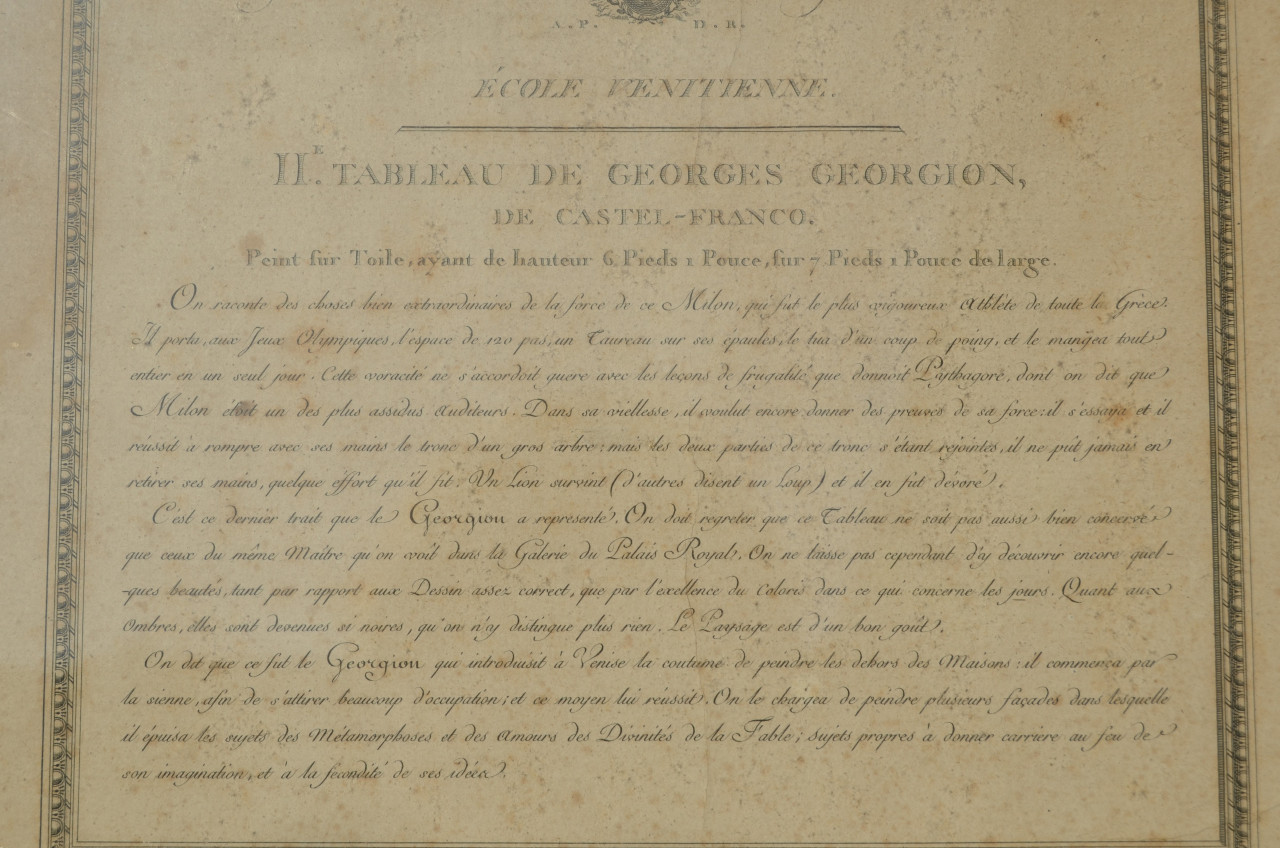 A.P. D.R.
ÉCOLE VENITIENNE.
II.E TABLEAU DE GEORGES GEORGION,
DE CASTEL-FRANCO.
Peint sur Toile, ayant de hauteur 6 Pieds 1 Pouce, sur 7 Pieds 1 Pouce de large.
On raconte des choses bien extraordinaires de la force de ce Milon, qui fut le plus vigoureux Athléte de toute la Grèce.
Il porta, aux Jeux Olympiques, l'espace de 120 pas, un Taureau sur ses épaules, le tüa d'un coup de poing, et le mangea tout
entier en un seul jour. Cette voracité ne s'accordoit guere avec les leçons de frugalité que donnoit Pythagore, dont on dit que
Milon étoit un des plus assidus Auditeurs. Dans sa viellesse, il voulut encore donner des preuves de sa force: il s'essaya et il
réussit à rompre avec ses mains le tronc d'un gros arbre: mais les deux parties de ce tronc s'étant rejointes, il ne pût jamais en
retirer ses mains, quelque éffort qu'il fit. Un Lion survint (d'autres disent un Loup) et il en fut dévoré.
C'est ce dernier trait que le Georgion a representé. On doit regreter que ce Tableau ne soit pas aussi bien concervé
que ceux du même Maitre qu'on voit dans la Galerie du Palais Royal. On ne laisse pas cependant d'y découvrir encore quel-
-ques beautés, tant par rapport aux Dessin assez correct, que par l'exellence du Coloris dans ce qui concerne les jours. Quant aux
Ombres, élles sont devenues si noires, qu'on n'y distingue plus rien. Le Paysage est d'un bon goût.
On dit que ce fut le Georgion qui introduisit à Venise la coutume de peindre les dehors des Maisons: il commença par
la sienne, afin de s'attirer beaucoup d'occupation; et ce moyen lui réussit. On le chargea de peindre plusieurs façades dans lesquelle
il épuisa les sujets des Métamorphoses et des Amours des Divinités de la Fable; sujets propres à donner carriere au feu de
son imagination, et à la fecondité de ses idées.